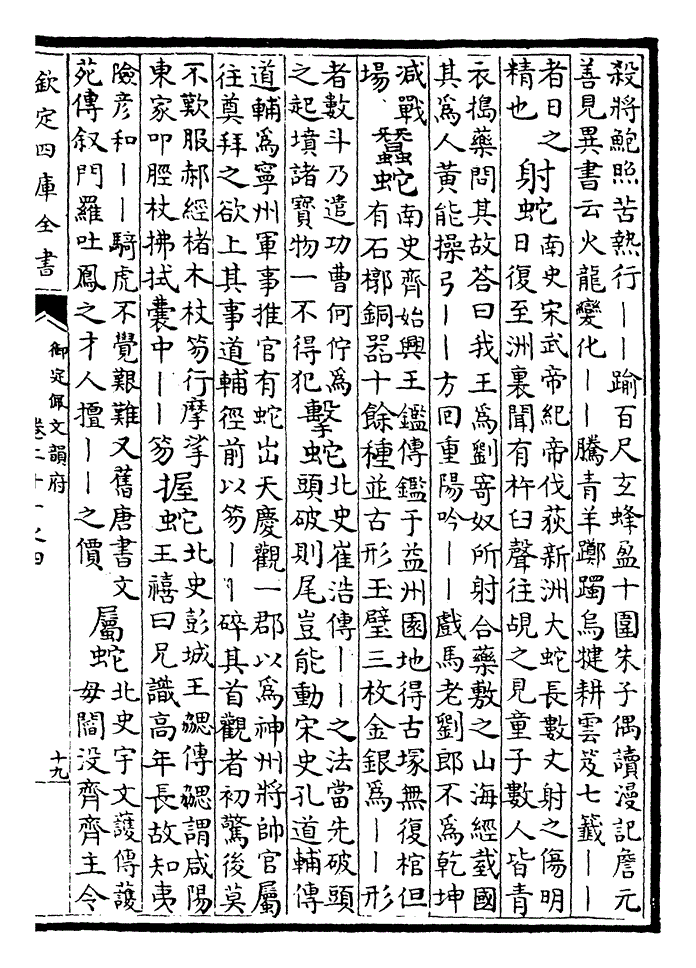 殺將鮑照苦熱行丨丨踰百尺玄蜂盈十圍朱子偶讀漫記詹元
善見異書云火龍變化丨丨騰青羊躑躅烏犍耕雲笈七籤丨丨
者日之
精也
射蛇
南史宋武帝紀帝伐荻新洲大蛇長數丈射之傷明
日復至洲裏聞有杵臼聲往覘之見童子數人皆青
衣搗藥問其故答曰我王為劉寄奴所射合藥敷之山海經國
其為人黃能操弓丨丨方回重陽吟丨丨戲馬老劉郎不為乾坤
減戰
場
蠶蛇
南史齊始興王鑑傳鑑于益州園地得古塜無復棺但
有石槨銅器十餘種並古形玉璧三枚金銀為丨丨形
者數斗乃遣功曹何佇為
之起墳諸寶物一不得犯
擊蛇
北史崔浩傳丨丨之法當先破頭
頭破則尾豈能動宋史孔道輔傳
道輔為寧州軍事推官有蛇出天慶觀一郡以為神州將帥官屬
往奠拜之欲上其事道輔徑前以笏丨丨碎其首觀者初驚後莫
不歎服郝經楮木杖笏行摩挲
東家叩脛杖拂拭囊中丨丨笏
握蛇
北史彭城王勰傳勰謂咸陽
王禧曰兄識高年長故知夷
險彥和丨丨騎虎不覺艱難又舊唐書文
苑傳叙門羅吐鳳之才人擅丨丨之價
屬蛇
北史宇文護傳護
母閻沒齊齊主令
欽定四庫全書
御定佩文韻府
卷二十一之四
十九